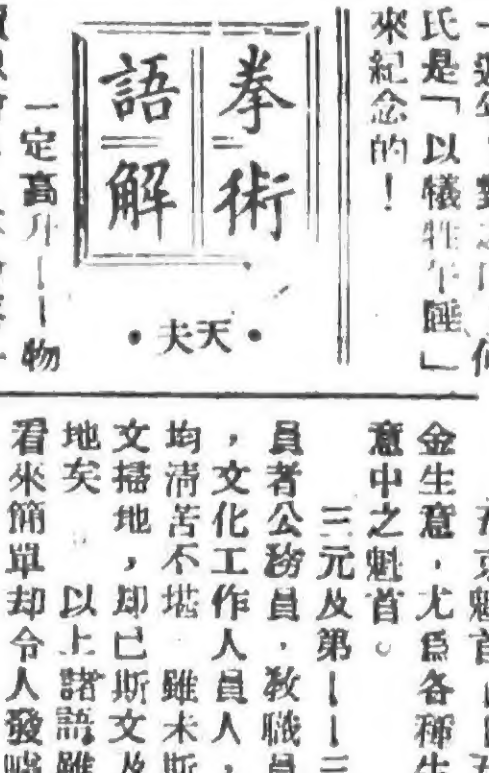 氏是「以犧牲午睡」
來紀念的！
拳術
語解
・天夫・
一定高升——物
魁首——五
金生意，尤爲各種生
意中之魁首。
三元及第——三
員者公務員，教職員
，文化工作人員人，
均清苦不堪 雖未斯
文掃地，却已斯文及
地矣 以上諸語雖
看來簡單却令人發噱